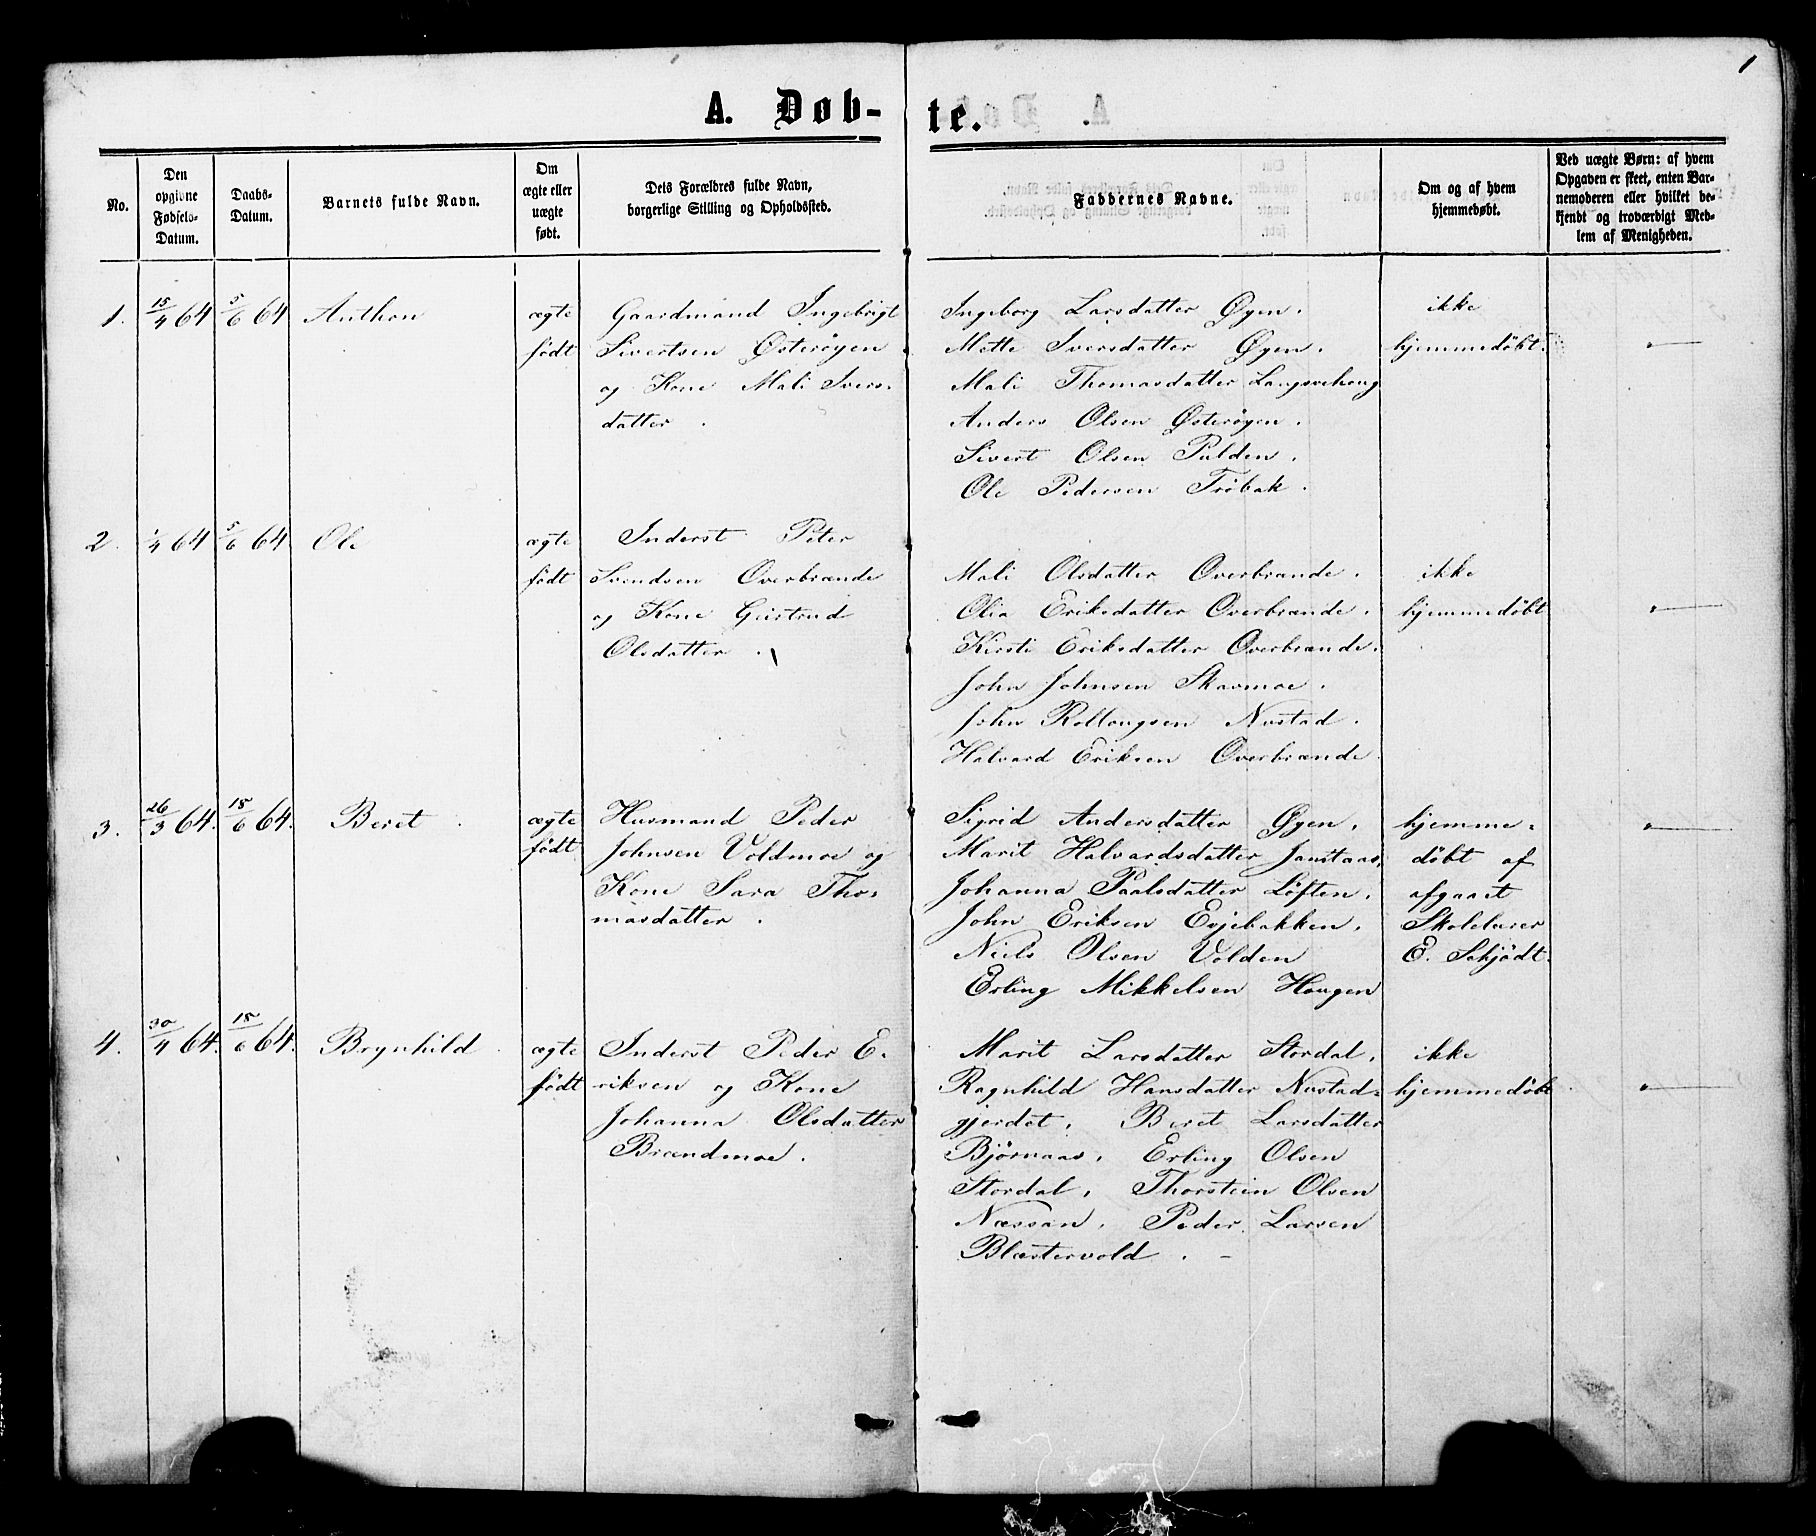 1
A. Døb-te.
No.
Den
opgivne
Fødsels-
Datum.
Daabs-
Datum.
Barnets fulde Navn.
Om
ægte eller
uægte
født.
Dets Forældres fulde Navn,
borgerlige Stilling og Opholdssted.
Faddernes Navne.
Om og af hvem
hjemmedøbt.
Ved uægte Børn: af hvem
Opgaven er skeet, enten Bar-
nemoderen eller hvilket be-
kjendt og troværdigt Med-
lem af Menigheden.
1.
15/4 64
5/6 64
Anthon
ægte
født
Gaardmand Ingebrigt
Sivertsen Østerøyen
og Kone Mali Ivers-
datter.
Ingeborg Larsdatter Øyen.
Mette Iversdatter Øyen.
Mali Thomasdatter
Anders Olsen Østerøyen.
Sivert Olsen
Ole Pedersen Trøbak.
ikke
hjemmedøbt.
2.
/4 64
5/6 64
Ole
ægte
født
Inderst Peter
Svendsen Overbrænde
og Kone Gjertrud
Olsdatter.
Mali Olsdatter Overbrænde.
Olia Eriksdatter Overbrænde.
Kirsti Eriksdatter Overbrænde.
John Johnsen Skarmoe.
John Rollougsen Nustad.
Halvard Eriksen Overbrænde
ikke
hjemmedøbt
3.
26/3 64.
18/6 64.
Beret.
ægte
født
Husmand Peder
Johnsen Voldmoe og
Kone Sara Tho-
masdatter.
Sigrid Andersdatter Øyen.
Marit Halvardsdatter Jamtaas,
Johanna Paalsdatter Løften.
John Eriksen Evjebakken.
Niels Olsen Volden
Erling Mikkelsen Haugen
hjemme-
døbt af
afgaaet
Skolelærer
E. Schjødt.
4.
30/4 64.
18/6 64.
Brynhild
ægte
født
Inderst Peder E-
riksen og Kone
Johanna Olsdatter
Brændmoe.
Marit Larsdatter Stordal.
Ragnhild Hansdatter Nustad-
gjerdet. Beret Larsdatter
Bjørnaas. Erling Olsen
Stordal. Thorstein Olsen
Næssan. Peder Larsen
Blæstervold.
ikke
hjemmedøbt